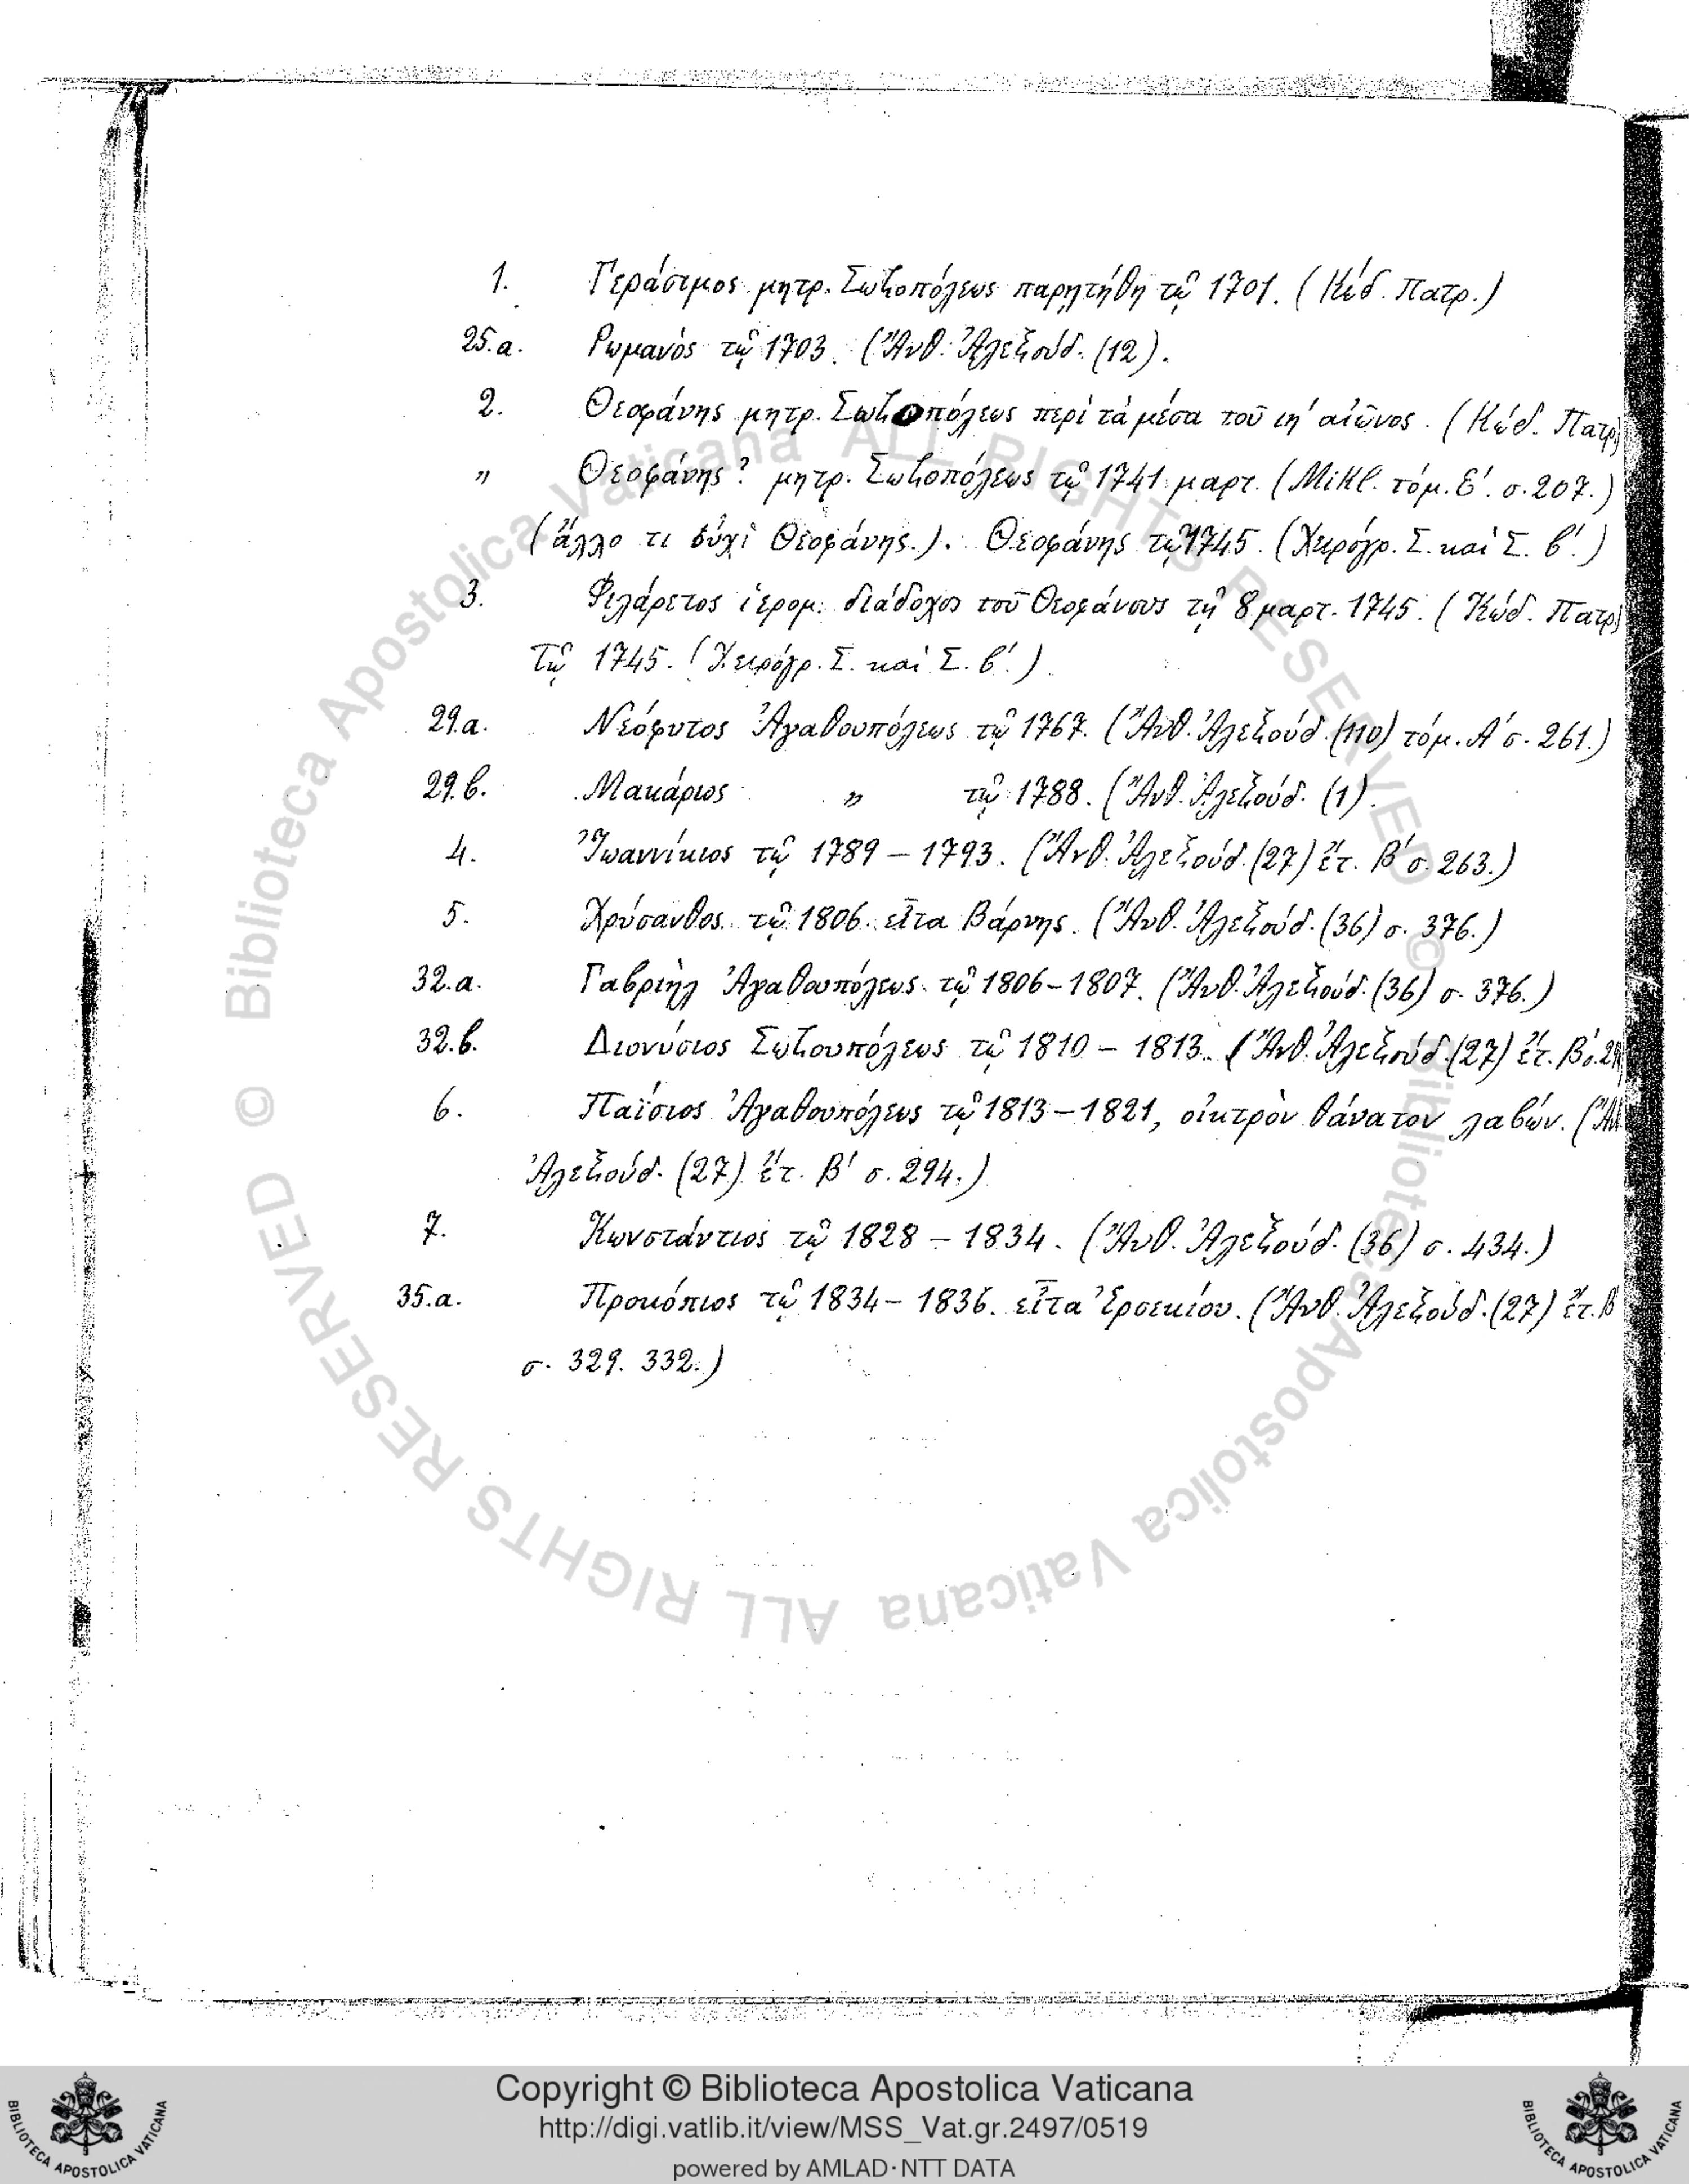 1. Γεράσιμος μητρ. Σωζοπόλεως παρῃτήθη τῷ 1701. (Κώδ. Πατρ.)
25.α. Ρωμανὸς τῷ 1703. (Ἄνθ. Ἀλεξούδ. (12).
2. Θεοφάνης μητρ. Σωζοπόλεως περὶ τὰ μέσα τοῦ ιη' αἰῶνος. (Κώδ. Πατρ.)
„ Θεοφάνης? μητρ. Σωζοπόλεως τῷ 1741 μαρτ. (Mikl. τόμ. Ϛ'. σ. 207.)
(ἄλλο τι οὐχὶ Θεοφάνης.). Θεοφάνης τῷ 1745. (Χειρόγρ. Σ. καὶ Σ. β'.)
3. Φιλάρετος ἱερομ. διάδοχος τοῦ Θεοφάνους τῇ 8 μαρτ. 1745. (Κώδ. Πατρ.)
Τῷ 1745. (Χειρόγρ. Σ. καὶ Σ. β'.)
29.α. Νεόφυτος Ἀγαθουπόλεως τῷ 1767. (Ἄνθ. Ἀλεξούδ. (110) τόμ. Α' σ. 261.)
29.β. Μακάριος „ τῷ 1788. (Ἄνθ. Ἀλεξούδ. (1).
4. Ἰωαννίκιος τῷ 1789 – 1793. (Ἄνθ. Ἀλεξούδ. (27) ἔτ. Β' σ. 263.)
5. Χρύσανθος τῷ 1806. εἶτα Βάρνης. (Ἄνθ. Ἀλεξούδ. (36) σ. 376.)
32.α. Γαβριὴλ Ἀγαθουπόλεως τῷ 1806–1807. (Ἄνθ. Ἀλεξούδ. (36) σ. 376.)
32.β. Διονύσιος Σωζουπόλεως τῷ 1810 – 1813. (Ἄνθ. Ἀλεξούδ. (27) ἔτ. Β'
6. Παΐσιος Ἀγαθουπόλεως τῷ 1813–1821, οἰκτρὸν θάνατον λαβών. (Ἄνθ.
Ἀλεξούδ. (27) ἔτ. Β' σ. 294.)
7. Κωνστάντιος τῷ 1828 – 1834. (Ἄνθ. Ἀλεξούδ. (36) σ. 434.)
35.α. Προκόπιος τῷ 1834 – 1836. εἶτα Ἐρσεκίου. (Ἄνθ. Ἀλεξούδ. (27) ἔτ. Β
σ. 329. 332.)
© Biblioteca Apostolica Vaticana ALL RIGHTS RESERVED © Biblioteca Apostolica Vaticana ALL RIGHTS RESERVED
Copyright © Biblioteca Apostolica Vaticana
http://digi.vatlib.it/view/MSS_Vat.gr.2497/0519
powered by AMLAD·NTT DATA
BIBLIOTECA APOSTOLICA VATICANA
BIBLIOTECA APOSTOLICA VATICANA